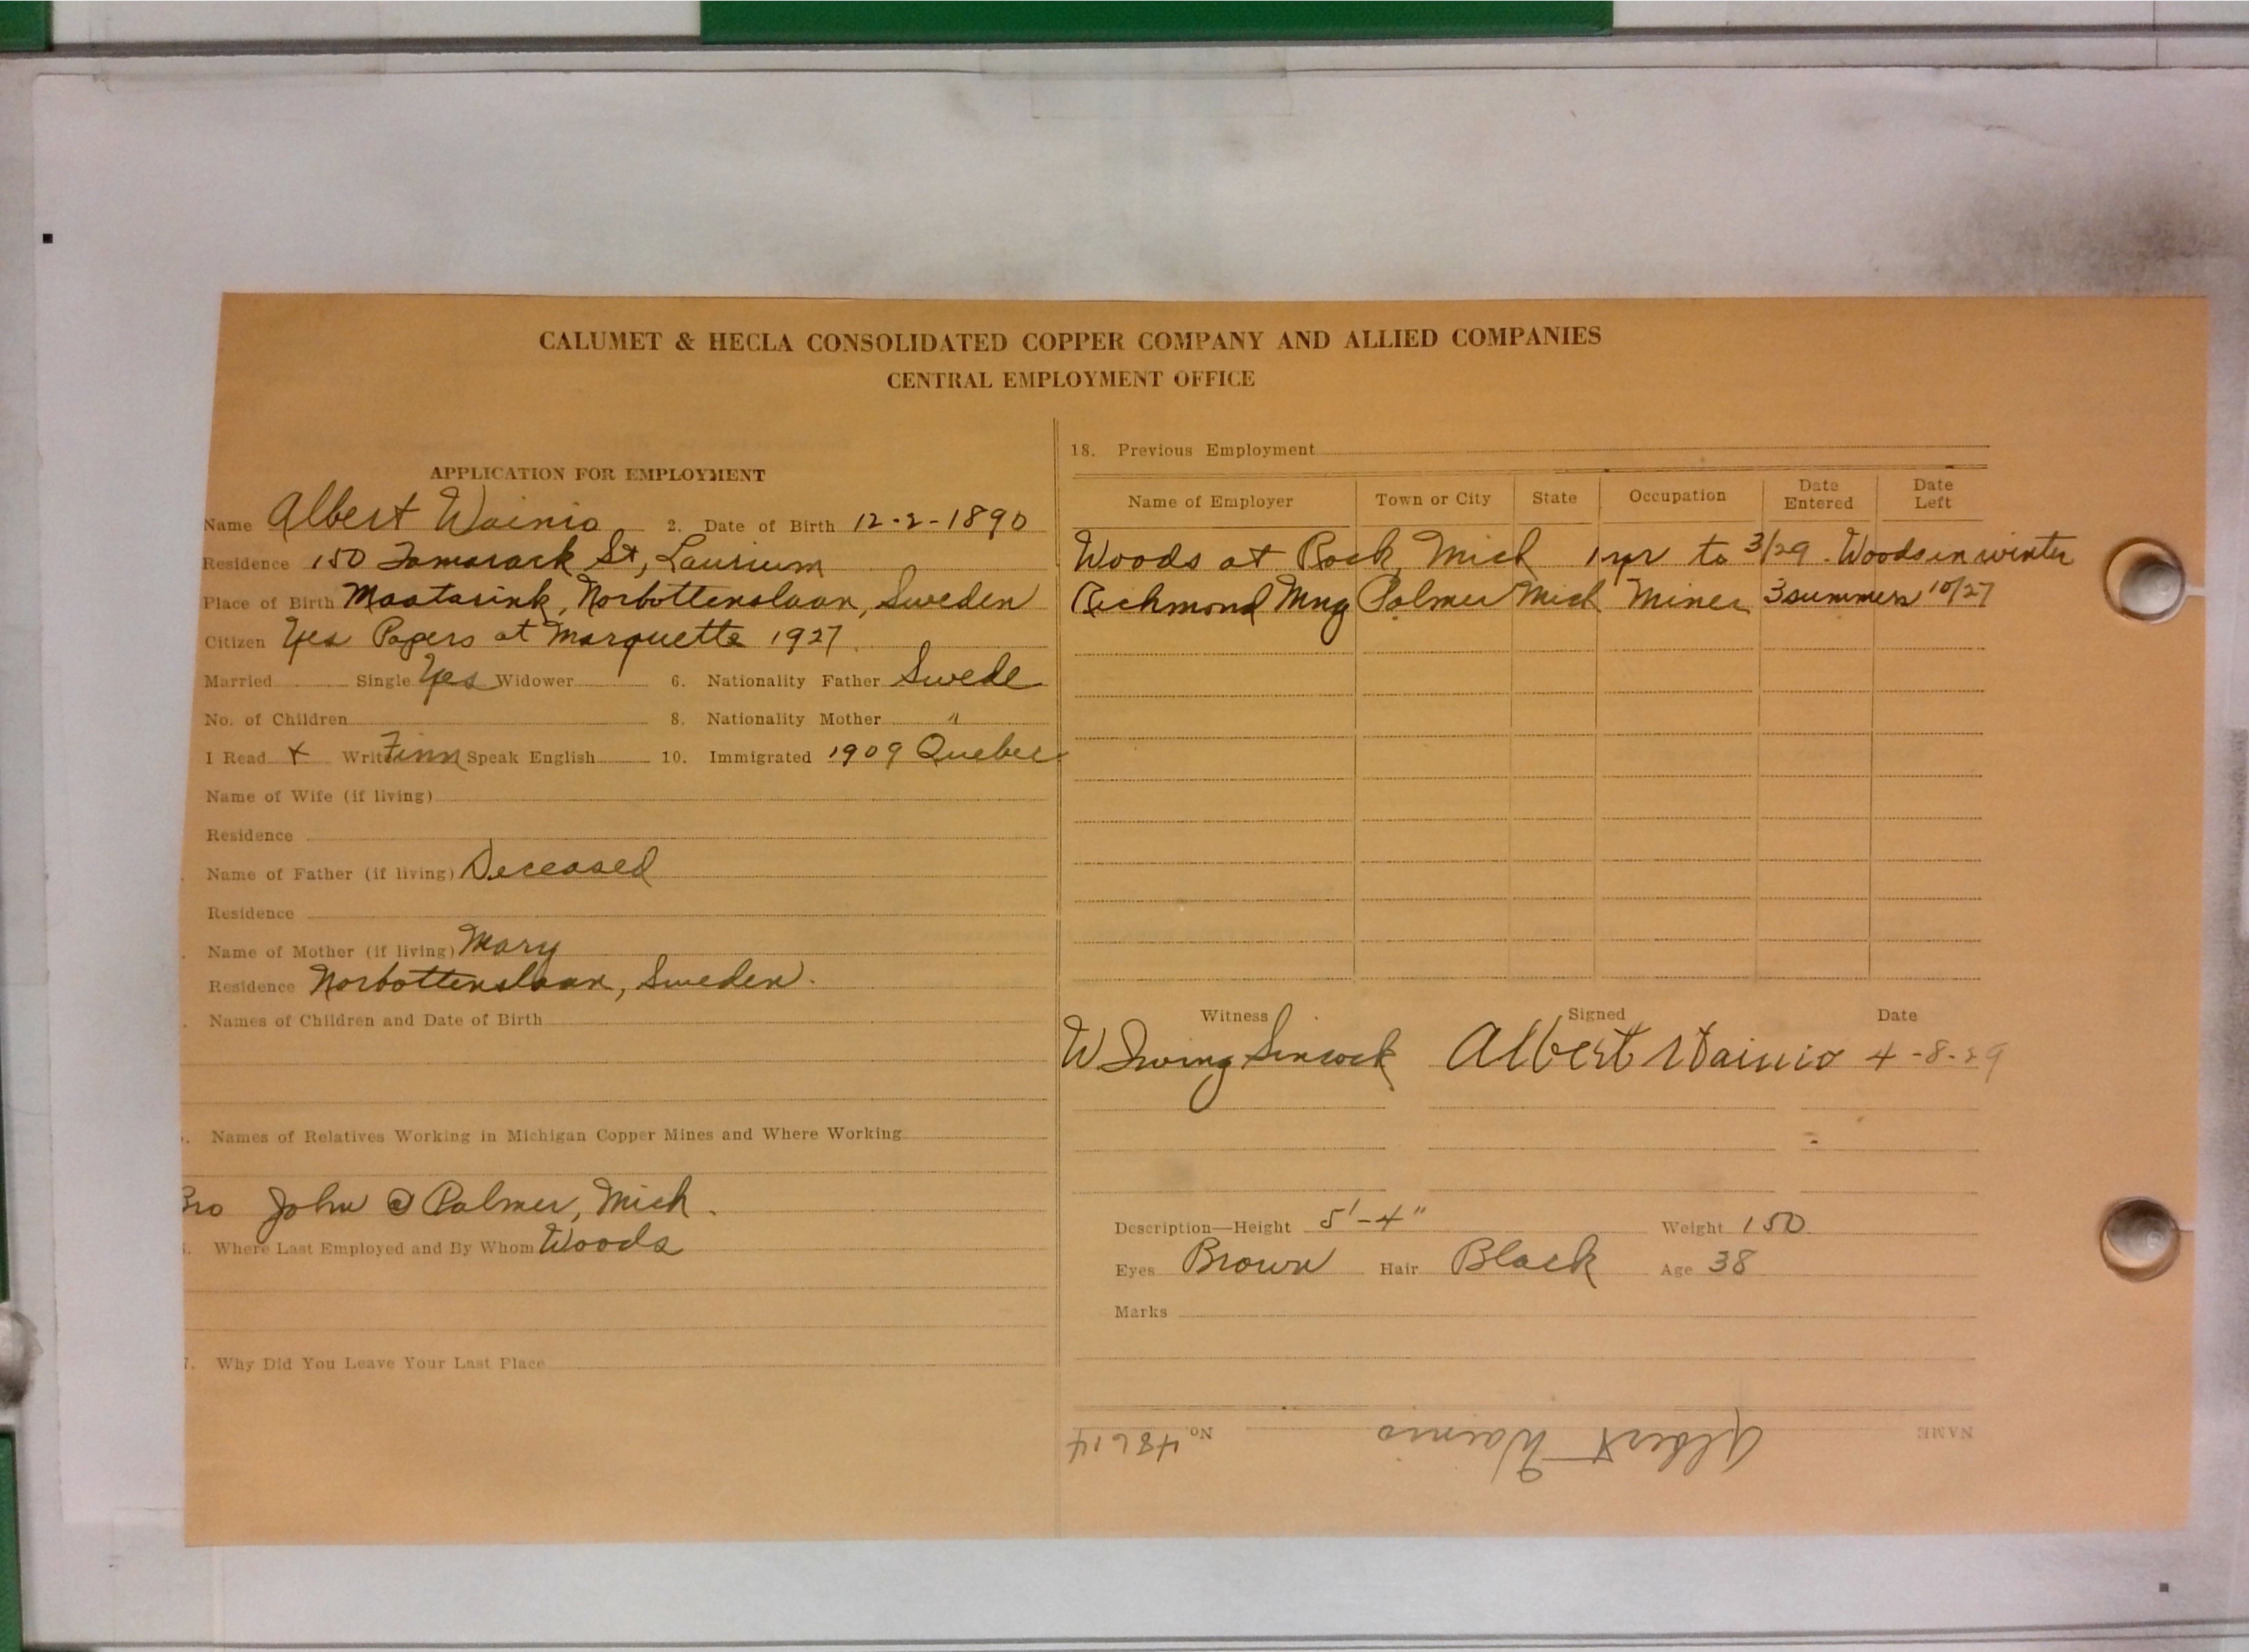 CALUMET & HECLA CONSOLIDATED COPPER COMPANY AND ALLIED COMPANIES
CENTRAL EMPLOYMENT OFFICE
APPLICATION FOR EMPLOYMENT
Name Albert Wainio 2. Date of Birth 12-2-1890
Residence 150 Tamarack St, Laurium
Place of Birth Maatasink, Norbottenslaan, Sweden
Citizen Yes Papers at Marquette 1927
Married Single Yes Widower 6. Nationality Father Swede
No. of Children 8. Nationality Mother "
I Read + Write Finn Speak English 10. Immigrated 1909 Quebec
Name of Wife (if living)
Residence
Name of Father (if living) Deceased
Residence
Name of Mother (if living) Mary
Residence Norbottenslaan, Sweden.
Names of Children and Date of Birth
Names of Relatives Working in Michigan Copper Mines and Where Working
Bro John @ Palmer, Mich.
Where Last Employed and By Whom Woods
7. Why Did You Leave Your Last Place
18. Previous Employment
Name of Employer Town or City State Occupation Date Entered Date Left
Woods at Rock, Mich 1 yr to 3/29. Woods in winter
Richmond Mng Palmer Mich Miner 3 summers 10/27
Witness Signed Date
W Irving Sincock Albert Wainio 4-8-29
Description—Height 5'-4" Weight 150
Eyes Brown Hair Black Age 38
Marks
NAME Albert Wainio No. 48614